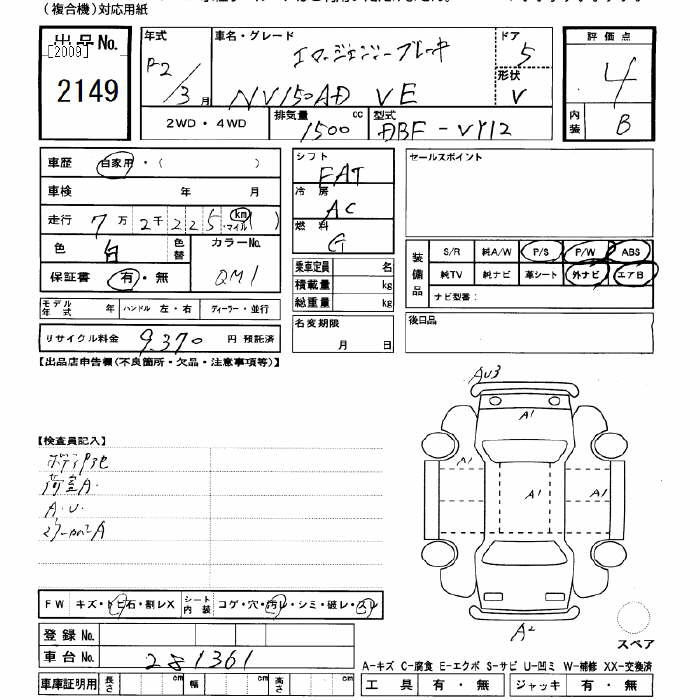 (複合機)対応用紙
出品No. 年式 車名・グレード エマージェンシーブレーキ ドア 5 評価点
[2009] 2149 R2/3月 NV150AD VE 形状 V 4
2WD・4WD 排気量 1500 cc 型式 DBF-VY12 内装 B
車歴 自家用・( ) シフト FAT セールスポイント
車検 年 月 冷房 AC
走行 7万2千225 km マイル ( ) 燃料 G
色 白 色替 カラーNo. QM1
保証書 有・無
乗車定員 名
積載量 kg
総重量 kg
装備品 S/R 純A/W P/S P/W ABS
純TV 純ナビ 革シート 外ナビ エアB
ナビ型番:
モデル年式 年 ハンドル 左・右 ディーラー・並行
名変期限 月 日 後日品
リサイクル料金 9,370 円 預託済
【出品店申告欄(不良箇所・欠品・注意事項等)】
AU3
A1
A1 A1 A1
【検査員記入】
荷室A・
A・U・
A2
FW キズ・トビ石・割レX シート内装 コゲ・穴・汚レ・シミ・破レ・スレ
登録No.
車台No. 281361
スペア
A-キズ C-腐食 E-エクボ S-サビ U-凹ミ W-補修 XX-交換済
車庫証明用 長さ cm 幅 cm 高さ cm 工具 有・無 ジャッキ 有・無